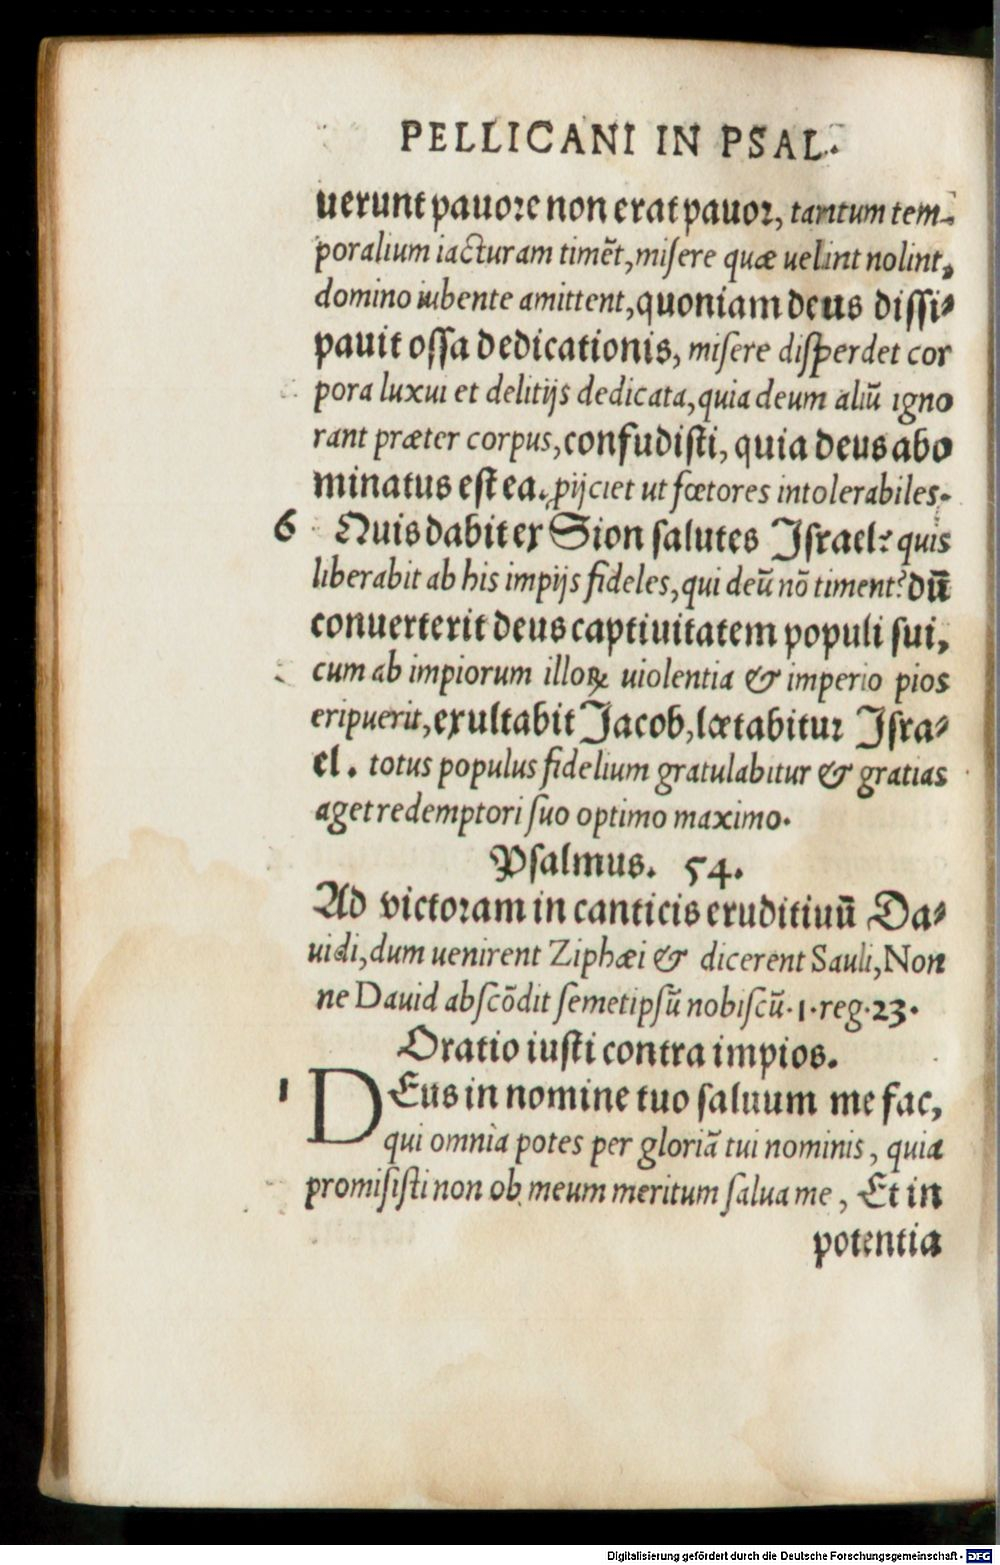 PELLICANI IN PSAL.
uerunt pauore non erat pauor, tantum tem-
poralium iacturam timẽt, misere quæ uelint nolint,
domino iubente amittent, quoniam deus dissi-
pauit ossa dedicationis, misere disperdet cor
pora luxui et delitijs dedicata, quia deum aliũ igno
rant præter corpus, confudisti, quia deus abo
minatus est ea. ꝓijciet ut fœtores intolerabiles.
6 Quis dabit ex Sion salutes Israel? quis
liberabit ab his impijs fideles, qui deũ nõ timent? dũ
conuerterit deus captiuitatem populi sui,
cum ab impiorum illoꝝ uiolentia & imperio pios
eripuerit, exultabit Jacob, lætabitur Isra-
el. totus populus fidelium gratulabitur & gratias
aget redemptori suo optimo maximo.
Psalmus. 54.
Ad victoram in canticis eruditiuũ Da-
uidi, dum uenirent Ziphæi & dicerent Sauli, Non
ne Dauid abscõdit semetipsũ nobiscũ. 1. reg. 23.
Oratio iusti contra impios.
1 DEus in nomine tuo saluum me fac,
qui omnia potes per gloriã tui nominis, quia
promisisti non ob meum meritum salua me, Et in
potentia
Digitalisierung gefördert durch die Deutsche Forschungsgemeinschaft - DFG